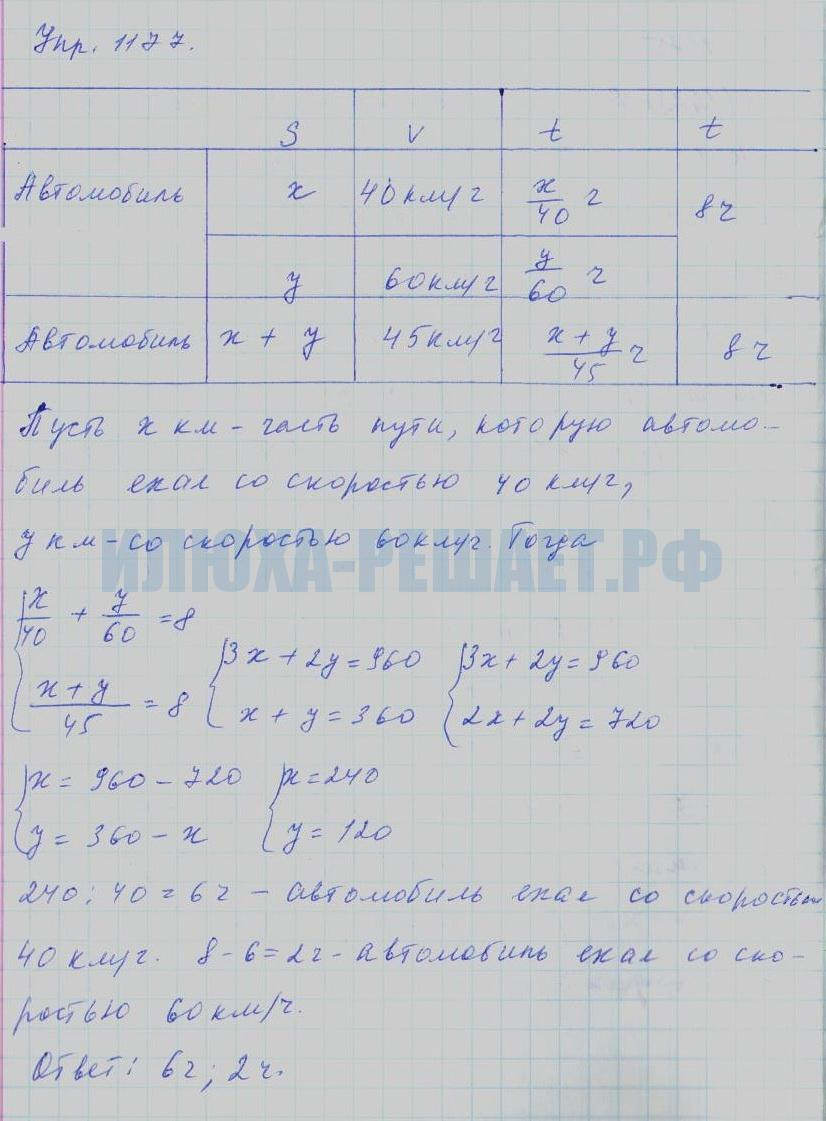 Упр. 1177.
S V t t
Автомобиль x 40 км/ч x/40 ч 8 ч
y 60 км/ч y/60 ч
Автомобиль x + y 45 км/ч (x + y)/45 ч 8 ч
Пусть x км - часть пути, которую автомо-
биль ехал со скоростью 40 км/ч,
y км - со скоростью 60 км/ч. Тогда
ИЛЮХА-РЕШАЕТ.РФ
{ x/40 + y/60 = 8
(x + y)/45 = 8 { 3x + 2y = 960
x + y = 360 { 3x + 2y = 960
2x + 2y = 720
{ x = 960 - 720
y = 360 - x { x = 240
y = 120
240 : 40 = 6 ч - автомобиль ехал со скоростью
40 км/ч. 8 - 6 = 2 ч - автомобиль ехал со ско-
ростью 60 км/ч.
Ответ: 6 ч; 2 ч.